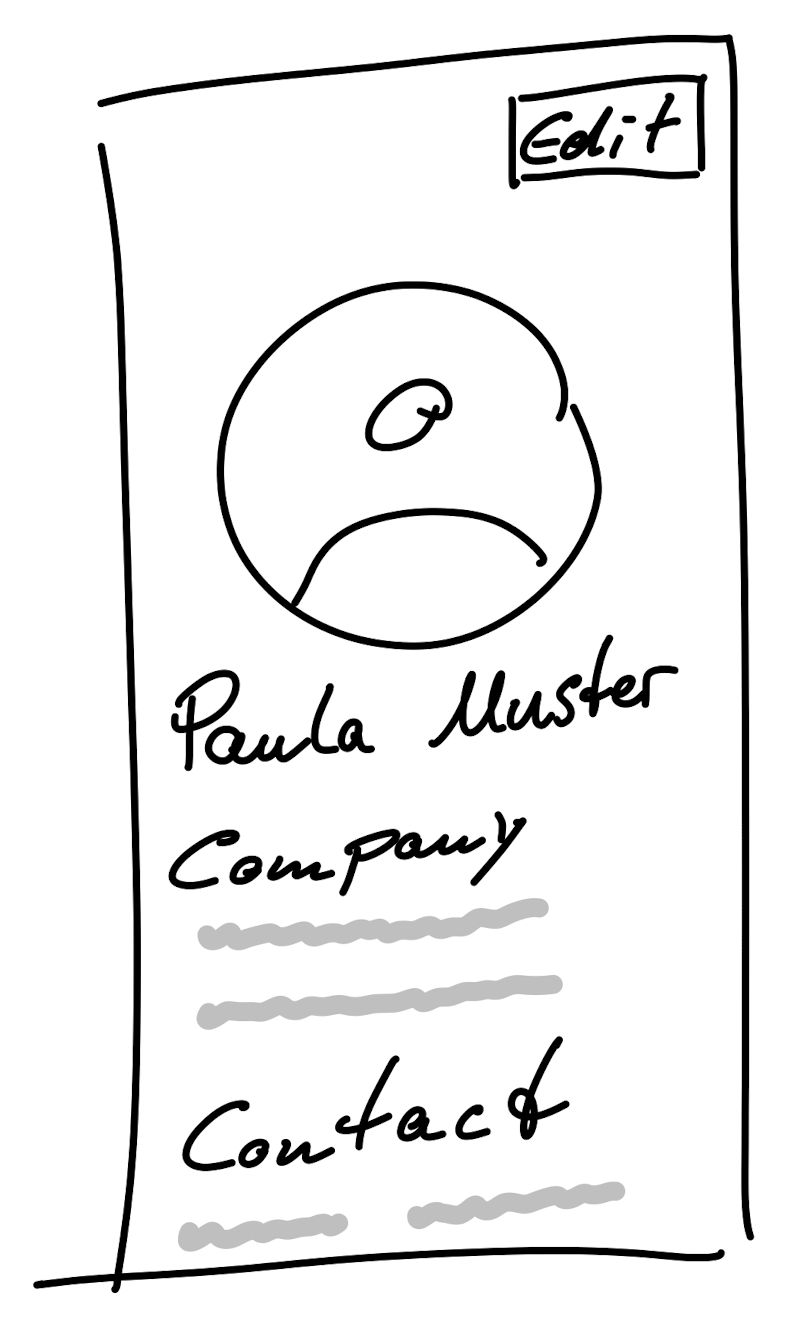 Edit
Paula Muster
Company
Contact